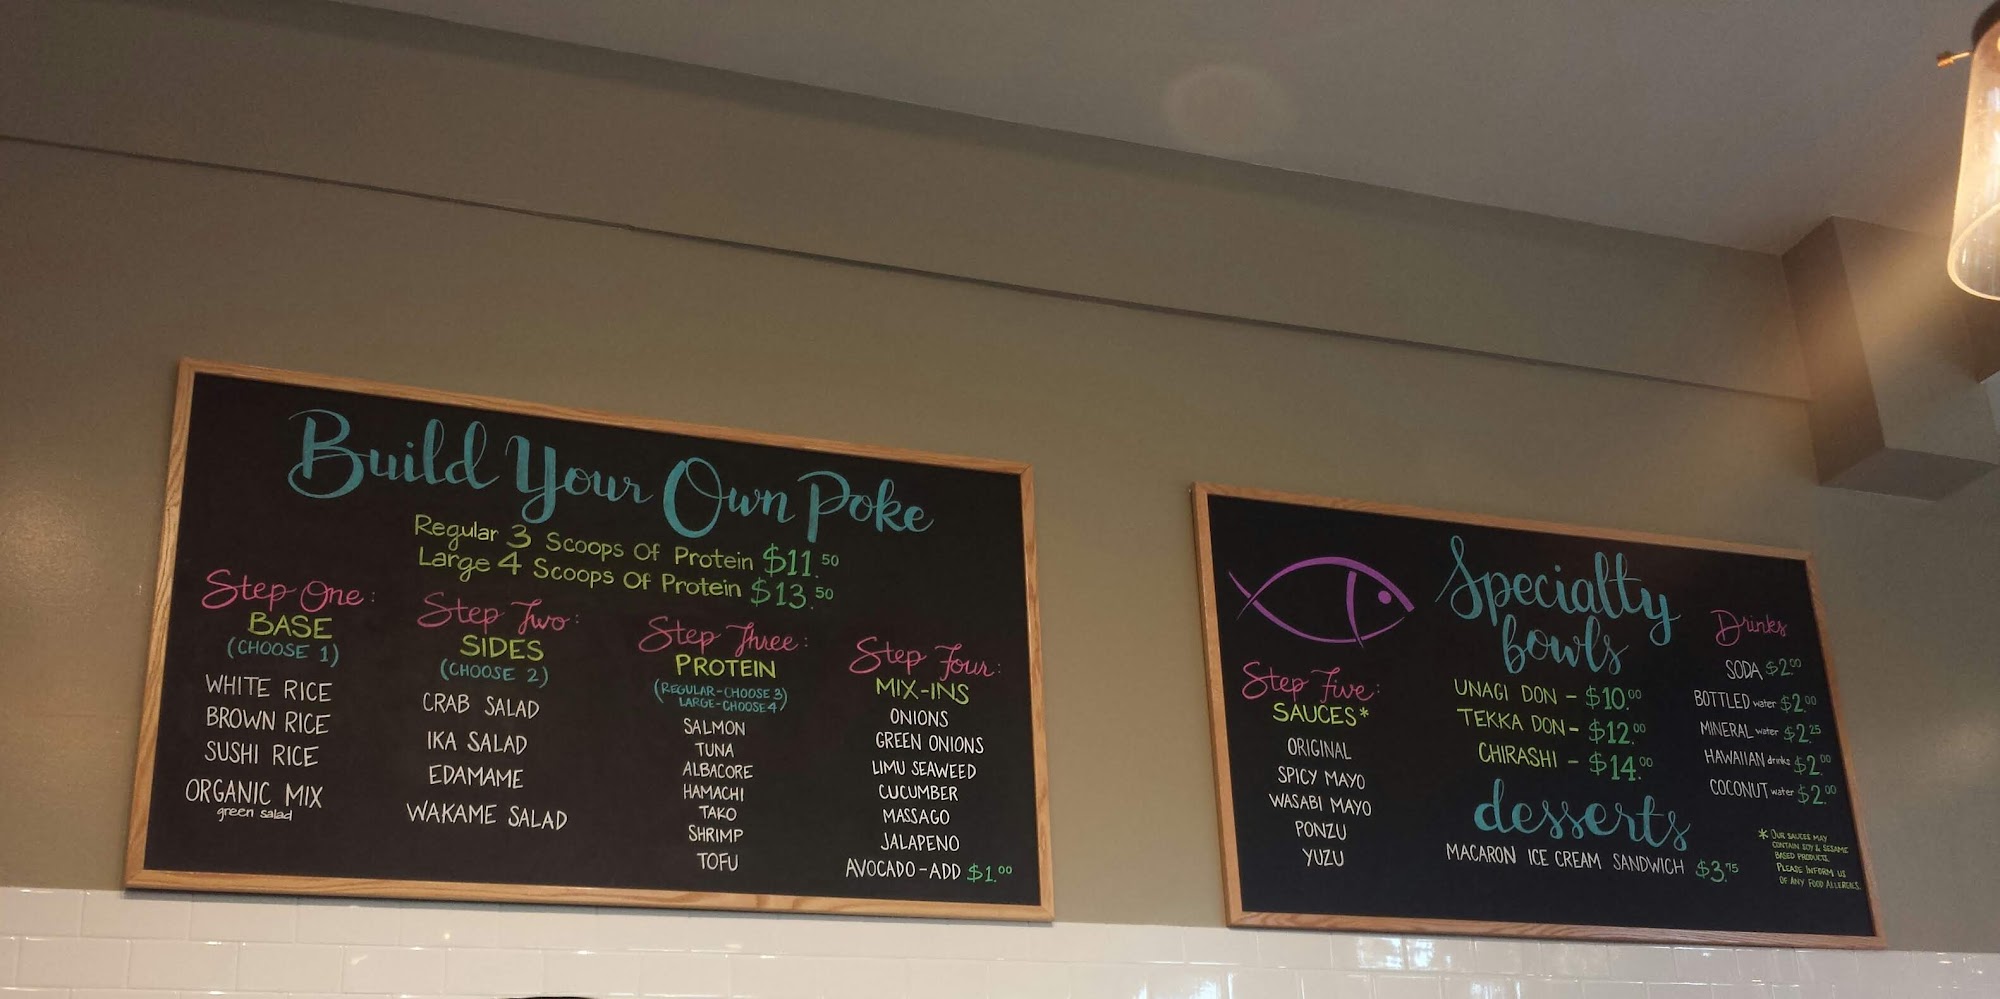 Build Your Own Poke
Regular 3 Scoops Of Protein $11.50
Large 4 Scoops Of Protein $13.50
Step One:
BASE
(CHOOSE 1)
WHITE RICE
BROWN RICE
SUSHI RICE
ORGANIC MIX
green salad
Step Two:
SIDES
(CHOOSE 2)
CRAB SALAD
IKA SALAD
EDAMAME
WAKAME SALAD
Step Three:
PROTEIN
(REGULAR-CHOOSE 3)
LARGE-CHOOSE 4)
SALMON
TUNA
ALBACORE
HAMACHI
TAKO
SHRIMP
TOFU
Step Four:
MIX-INS
ONIONS
GREEN ONIONS
LIMU SEAWEED
CUCUMBER
MASSAGO
JALAPENO
AVOCADO-ADD $1.00
Step Five:
SAUCES*
ORIGINAL
SPICY MAYO
WASABI MAYO
PONZU
YUZU
Specialty
bowls
UNAGI DON - $10.00
TEKKA DON - $12.00
CHIRASHI - $14.00
desserts
MACARON ICE CREAM SANDWICH $3.75
Drinks
SODA $2.00
BOTTLED water $2.00
MINERAL water $2.25
HAWAIIAN drinks $2.00
COCONUT water $2.00
* OUR SAUCES MAY
CONTAIN SOY & SESAME
BASED PRODUCTS.
PLEASE INFORM US
OF ANY FOOD ALLERGIES.